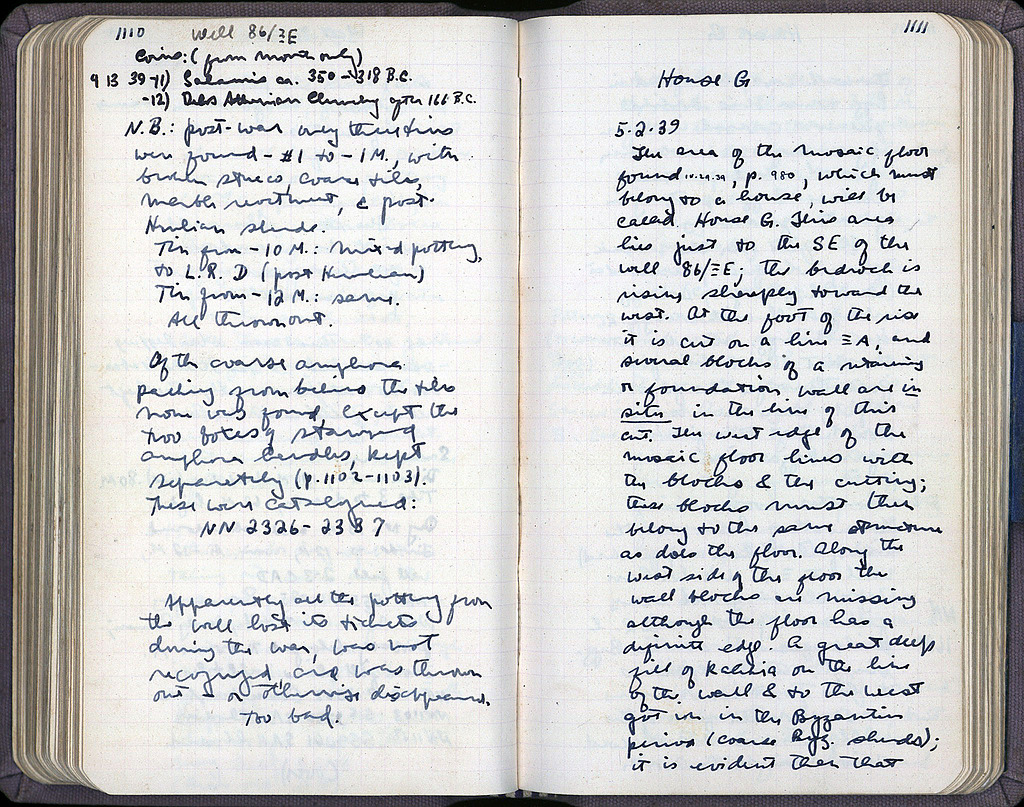 1110 Well 86/ΞE
Coins: (from mouth only)
9 13 39 -11) Salamis ca. 350 - 318 B.C.
-12) Delos Athenian Cleruchy after 166 B.C.
N.B.: post-war only three tins
were found - #1 to -1 M., with
broken stucco, coarse tile,
marble revetment, & post-
Herulian sherds.
Tin from -10 M.: mixed pottery,
to L.R. D (post Herulian)
Tin from -12 M.: same.
All thrown out.
Of the coarse amphora
packing from behind the tiles
none was found, except the
two boxes of stamped
amphora handles, kept
separately (p. 1102-1103).
These were catalogued:
NN 2326 - 2387
Apparently all the pottery from
the well lost its tickets
during the war, was not
recognized, and was thrown
out or otherwise disappeared.
Too bad.
1111
House G
5.2.39
The area of the mosaic floor
found, p. 980, which must
belong to a house, will be
called House G. This area
lies just to the SE of the
well 86/ΞE; the bedrock is
rising sharply toward the
west. At the foot of the rise
it is cut on a line ΞA, and
several blocks of a retaining
or foundation wall are in
situ in the line of this
cut. The west edge of the
mosaic floor lines with
the blocks & the cutting;
these blocks must then
belong to the same structure
as does the floor. Along the
west side of the floor the
wall blocks are missing
although the floor has a
definite edge. A great deep
fill of on the line
of the wall & to the west
got in in the Byzantine
period (coarse Byz. sherds);
it is evident then that